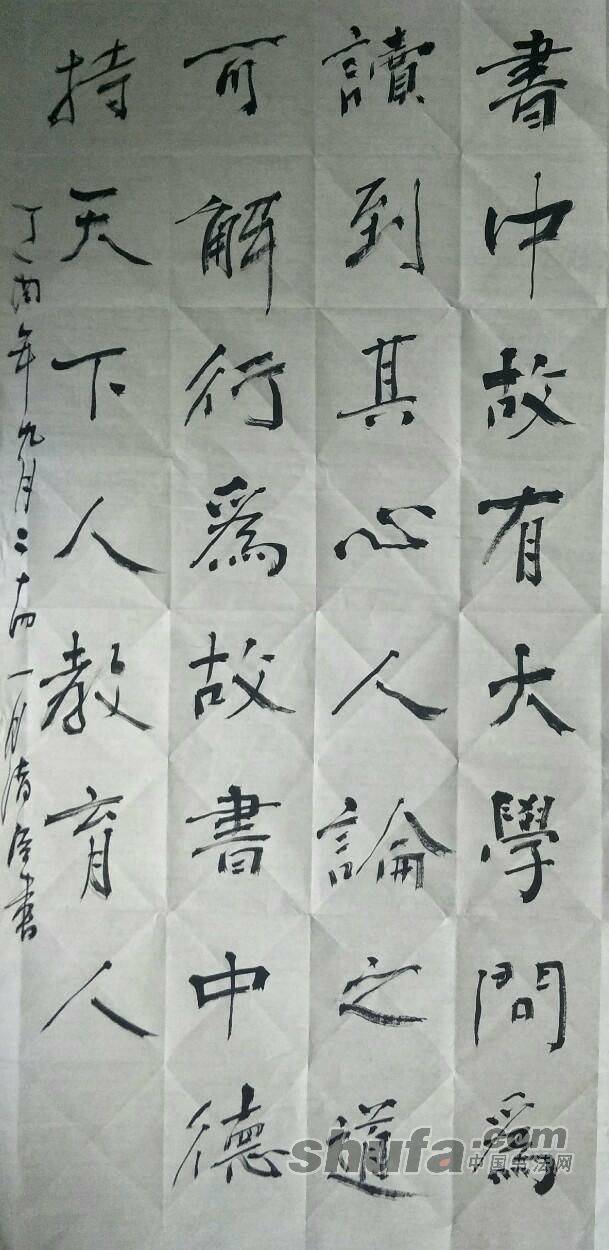 書中故有大學問爲
讀到其心人論之道
可解行爲故書中德
持天下人教育人
丁酉年九月二十四一月清 書
shufa.com
中国书法网